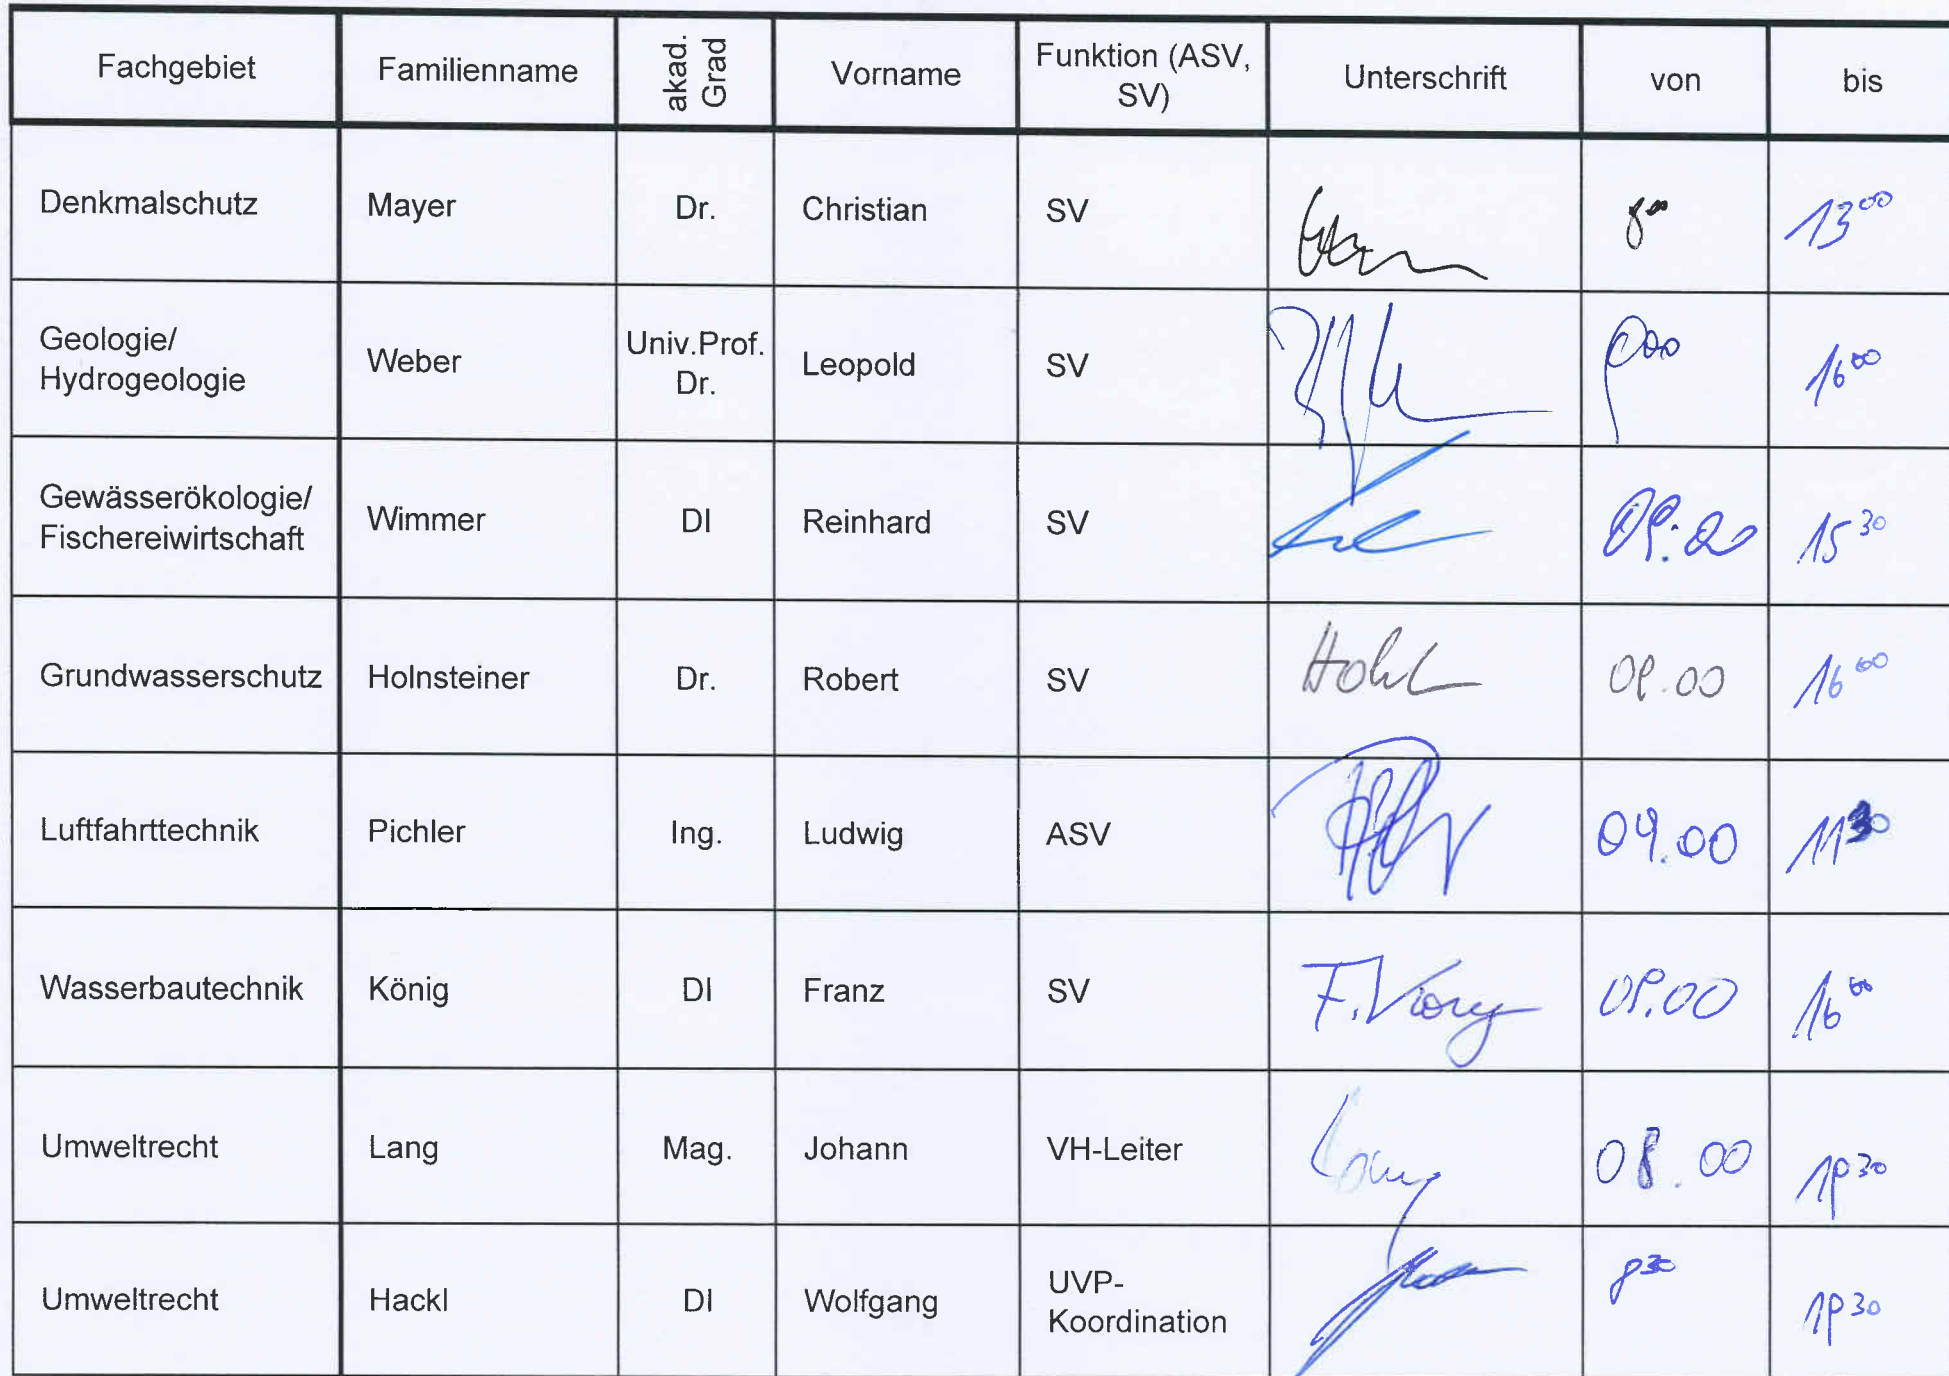 Fachgebiet Familienname akad. Grad Vorname Funktion (ASV, SV) Unterschrift von bis
Denkmalschutz Mayer Dr. Christian SV 8⁰⁰ 13⁰⁰
Geologie/
Hydrogeologie Weber Univ.Prof. Dr. Leopold SV 16⁰⁰
Gewässerökologie/
Fischereiwirtschaft Wimmer DI Reinhard SV 15³⁰
Grundwasserschutz Holnsteiner Dr. Robert SV 16⁰⁰
Luftfahrttechnik Pichler Ing. Ludwig ASV 09.00 11³⁰
Wasserbautechnik König DI Franz SV 16⁰⁰
Umweltrecht Lang Mag. Johann VH-Leiter 08.00
Umweltrecht Hackl DI Wolfgang UVP-
Koordination